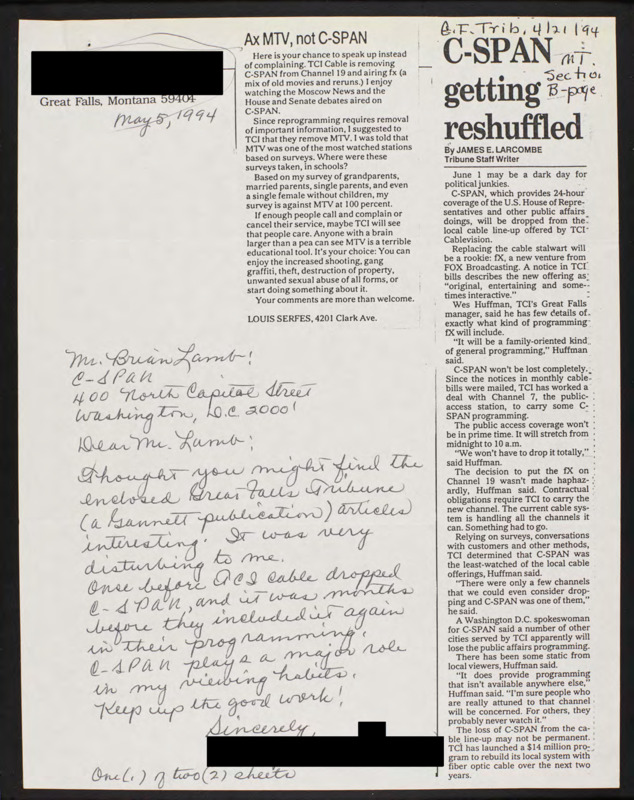 Great Falls, Montana 59404
May 5, 1994
Ax MTV, not C-SPAN
Here is your chance to speak up instead
of complaining. TCI Cable is removing
C-SPAN from Channel 19 and airing fx (a
mix of old movies and reruns.) I enjoy
watching the Moscow News and the
House and Senate debates aired on
C-SPAN.
Since reprogramming requires removal
of important information, I suggested to
TCI that they remove MTV. I was told that
MTV was one of the most watched stations
based on surveys. Where were these
surveys taken, in schools?
Based on my survey of grandparents,
married parents, single parents, and even
a single female without children, my
survey is against MTV at 100 percent.
If enough people call and complain or
cancel their service, maybe TCI will see
that people care. Anyone with a brain
larger than a pea can see MTV is a terrible
educational tool. It's your choice: You can
enjoy the increased shooting, gang
graffiti, theft, destruction of property,
unwanted sexual abuse of all forms, or
start doing something about it.
Your comments are more than welcome.
LOUIS SERFES, 4201 Clark Ave.
Mr. Brian Lamb!
C-SPAN
400 North Capital Street
Washington, D.C 20001
Dear Mr. Lamb:
Thought you might find the
enclosed Great Falls Tribune
(a Gannett publication) articles
interesting. It was very
disturbing to me.
Once before TCI cable dropped
C-SPAN, and it was months
before they included it again
in their programming.
C-SPAN plays a major role
in my viewing habits.
Keep up the good work!
Sincerely,
One (1) of two (2) sheets
G.F. Trib, 4/21/94
MT.
Section
B-page
C-SPAN
getting
reshuffled
By JAMES E. LARCOMBE
Tribune Staff Writer
June 1 may be a dark day for
political junkies.
C-SPAN, which provides 24-hour
coverage of the U.S. House of Repre-
sentatives and other public affairs
doings, will be dropped from the
local cable line-up offered by TCI
Cablevision.
Replacing the cable stalwart will
be a rookie: fX, a new venture from
FOX Broadcasting. A notice in TCI
bills describes the new offering as
"original, entertaining and some-
times interactive."
Wes Huffman, TCI's Great Falls
manager, said he has few details of
exactly what kind of programming
fX will include.
"It will be a family-oriented kind
of general programming," Huffman
said.
C-SPAN won't be lost completely.
Since the notices in monthly cable
bills were mailed, TCI has worked a
deal with Channel 7, the public-
access station, to carry some C-
SPAN programming.
The public access coverage won't
be in prime time. It will stretch from
midnight to 10 a.m.
"We won't have to drop it totally,"
said Huffman.
The decision to put the fX on
Channel 19 wasn't made haphaz-
ardly, Huffman said. Contractual
obligations require TCI to carry the
new channel. The current cable sys-
tem is handling all the channels it
can. Something had to go.
Relying on surveys, conversations
with customers and other methods,
TCI determined that C-SPAN was
the least-watched of the local cable
offerings, Huffman said.
"There were only a few channels
that we could even consider drop-
ping and C-SPAN was one of them,"
he said.
A Washington D.C. spokeswoman
for C-SPAN said a number of other
cities served by TCI apparently will
lose the public affairs programming.
There has been some static from
local viewers, Huffman said.
"It does provide programming
that isn't available anywhere else,"
Huffman said. "I'm sure people who
are really attuned to that channel
will be concerned. For others, they
probably never watch it."
The loss of C-SPAN from the ca-
ble line-up may not be permanent.
TCI has launched a $14 million pro-
gram to rebuild its local system with
fiber optic cable over the next two
years.